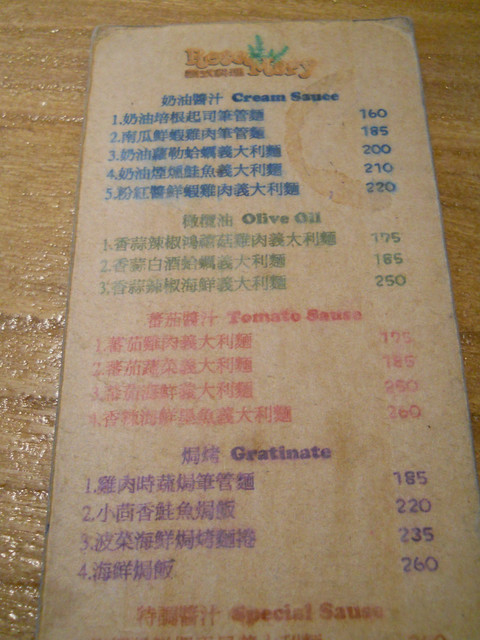 Rosemary
奶油醬汁 Cream Sauce
1.奶油培根起司筆管麵 160
2.南瓜鮮蝦雞肉筆管麵 185
3.奶油蘿勒蛤蠣義大利麵 200
4.奶油煙燻鮭魚義大利麵 210
5.粉紅醬鮮蝦雞肉義大利麵 220
橄欖油 Olive Oil
1.香蒜辣椒鴻禧菇雞肉義大利麵 175
2.香蒜白酒蛤蠣義大利麵 185
3.香蒜辣椒海鮮義大利麵 250
蕃茄醬汁 Tomato Sause
1.蕃茄雞肉義大利麵 175
2.蕃茄蔬菜義大利麵 185
3.蕃茄海鮮義大利麵 250
4.香辣海鮮墨魚義大利麵 260
焗烤 Gratinate
1.雞肉時蔬焗筆管麵 185
2.小茴香鮭魚焗飯 220
3.波菜海鮮焗烤麵捲 235
4.海鮮焗飯 260
特調醬汁 Special Sause